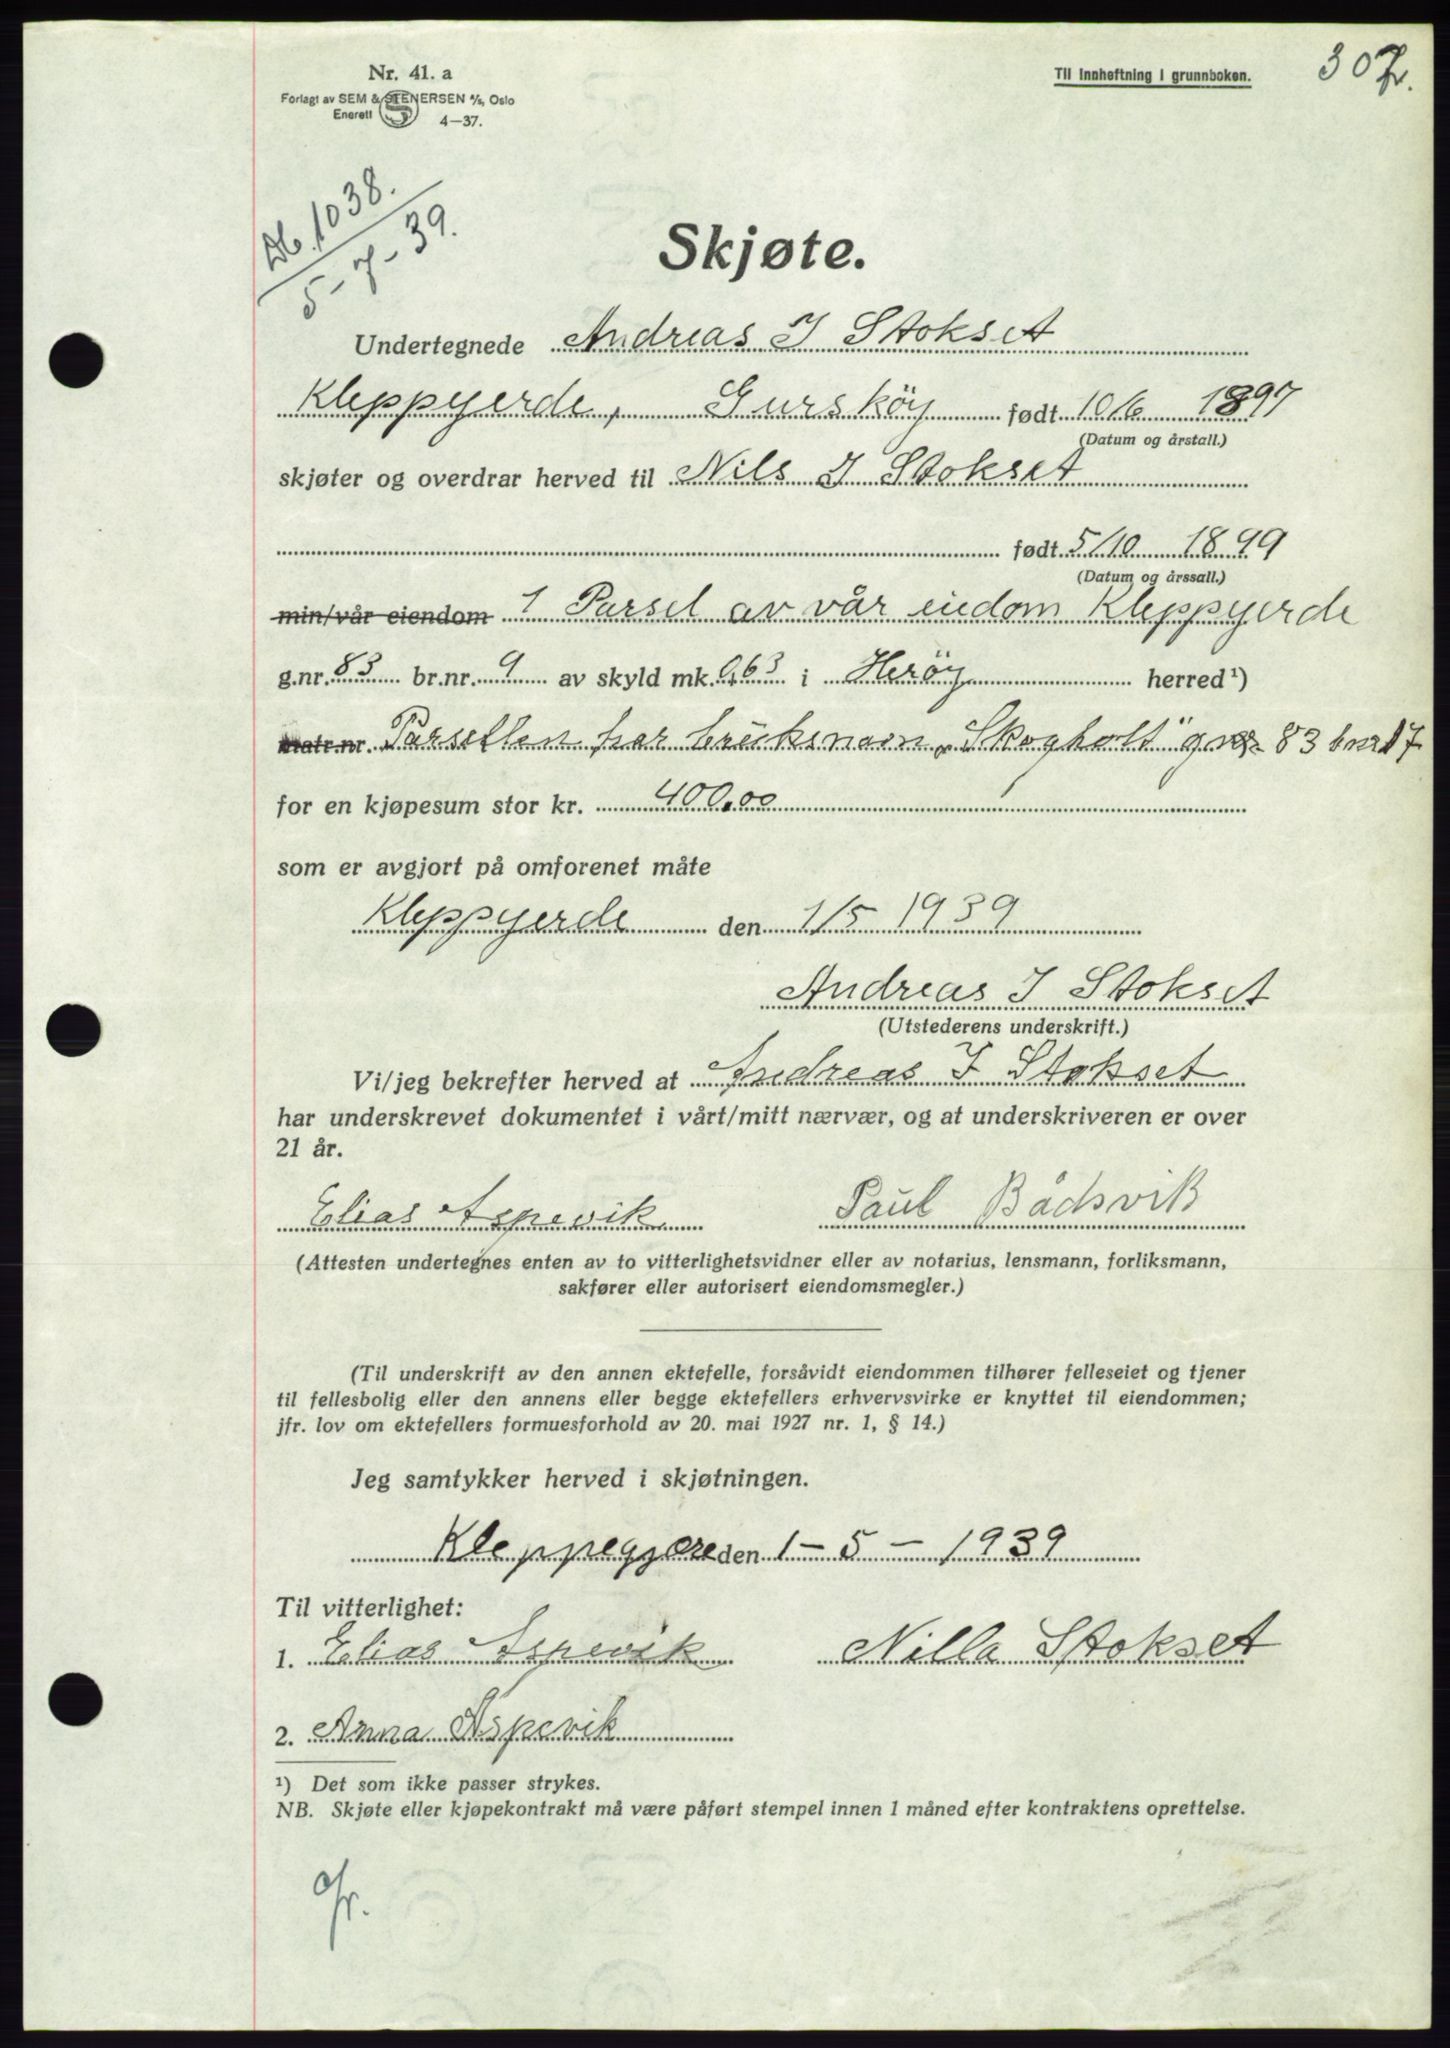 Nr. 41. a
Forlagt av SEM & STENERSEN A/S, Oslo
Enerett
4—37.
Til innheftning i grunnboken.
307.
Db. 1038.
5-7-39.
Skjøte.
Undertegnede Andreas J Stokset
Kleppgerde, Gursköy født 10/6 1897
(Datum og årstall.)
skjøter og overdrar herved til Nils J Stokset
født 5/10 1899
(Datum og årssall.)
min/vår eiendom 1 Parsel av vår eiedom Kleppgerde
g.nr. 83 br.nr. 9 av skyld mk. 0,63 i Heröy herred¹)
matr.nr. Parsellen har bruksnavn „Skogholt" gnr 83 bnr 17
for en kjøpesum stor kr. 400,00
som er avgjort på omforenet måte
Kleppgerde den 1/5 1939
Andreas J Stokset
(Utstederens underskrift.)
Vi/jeg bekrefter herved at Andreas J Stokset
har underskrevet dokumentet i vårt/mitt nærvær, og at underskriveren er over
21 år.
Elias Aspevik Paul Bådsvik
(Attesten undertegnes enten av to vitterlighetsvidner eller av notarius, lensmann, forliksmann,
sakfører eller autorisert eiendomsmegler.)
(Til underskrift av den annen ektefelle, forsåvidt eiendommen tilhører felleseiet og tjener
til fellesbolig eller den annens eller begge ektefellers erhvervsvirke er knyttet til eiendommen;
jfr. lov om ektefellers formuesforhold av 20. mai 1927 nr. 1, § 14.)
Jeg samtykker herved i skjøtningen.
Kleppegjære den 1-5-1939
Til vitterlighet:
1. Elias Aspevik Nilla Stokset
2. Anna Aspevik
¹) Det som ikke passer strykes.
NB. Skjøte eller kjøpekontrakt må være påført stempel innen 1 måned efter kontraktens oprettelse.